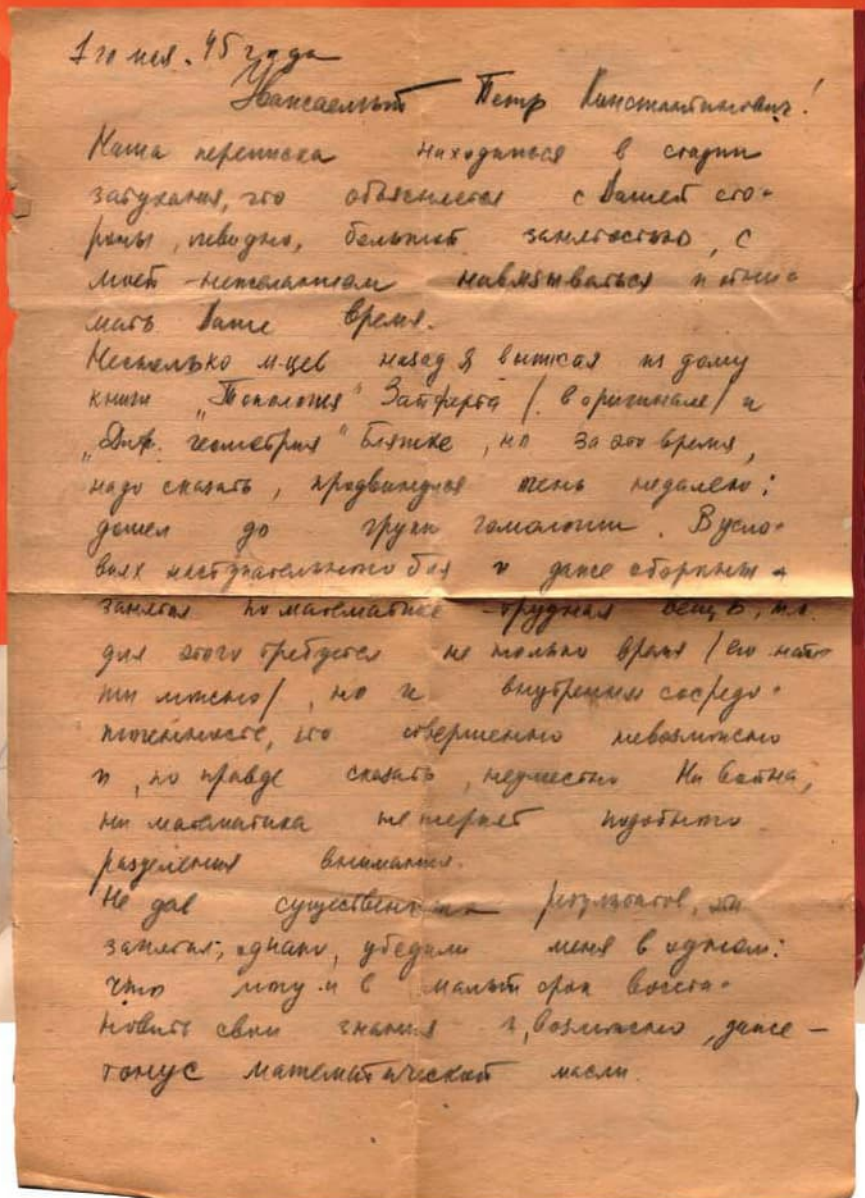 1го  45 года
Уважаемый Петр Константинович!
Наша переписка находиться в стадии
затухания, что объясняется с Вашей сто-
роны, очевидно, большой занятостью, с
моей - нежеланием навязываться и отни-
мать Ваше время.
Несколько м-цев назад я выписал из дому
книги „Топология" Зайферта /в оригинале/ и
„Диф. геометрия" Бляшке, но за это время,
надо сказать, продвинулся очень недалеко:
дошел до групп гомологии. В усло-
виях наступательного боя и даже обороны
занятия по математике - трудная вещь, т.к.
для этого требуется не только время /его най-
ти можно/, но и внутренняя сосредо-
точенность, что совершенно невозможно
и, по правде сказать, неуместно Ни война,
ни математика не терпят подобного
разделения внимания.
Не дав существенных результатов, эти
занятия, однако, убедили меня в одном:
что могу я в малый срок восста-
новить свои знания и, возможно, даже -
тонус математической мысли.